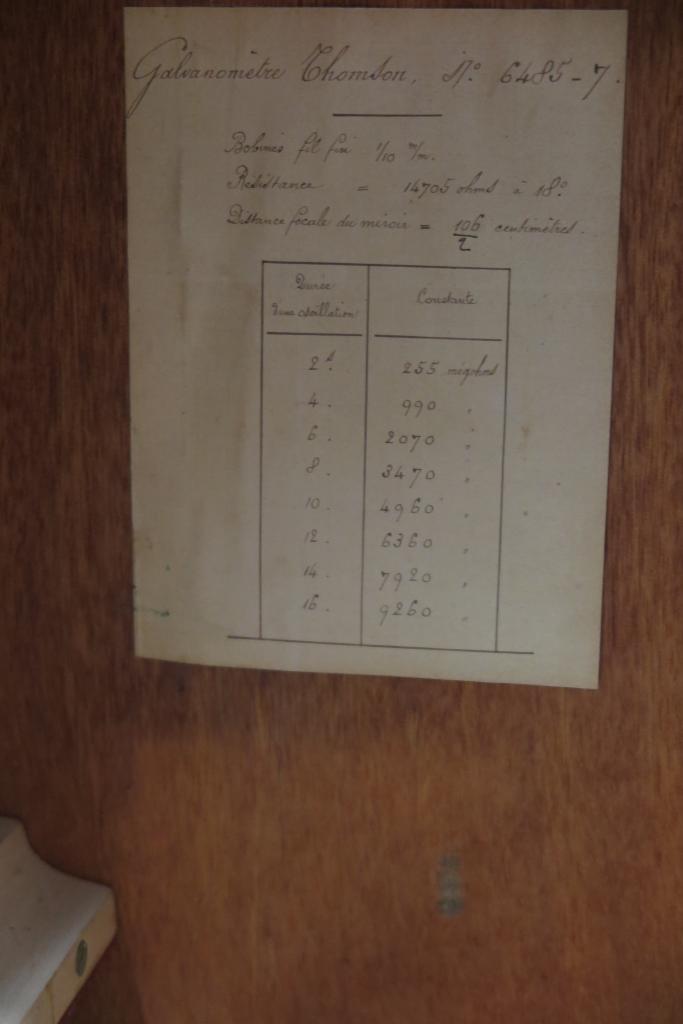 Galvanomètre Thomson, N° 6485-7.
Bobines fil fin 1/10 m/m.
Résistance = 14705 ohms à 18°
Distance focale du miroir = 106/2 centimètres.
Durée d'une oscillation
Constante
2s. 255 mégohms
4. 990 "
6. 2070 "
8. 3470 "
10. 4960 "
12. 6360 "
14. 7920 "
16. 9260 "